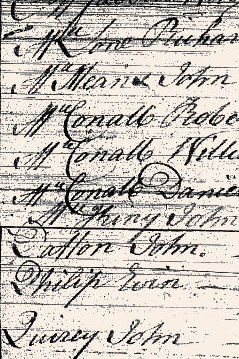 Mc Lone Richar
Mc Means John
Mc Conall Robe
Mc Conall Willi
Mc Conall Danie
Mc John
Patton John.
Philip
John